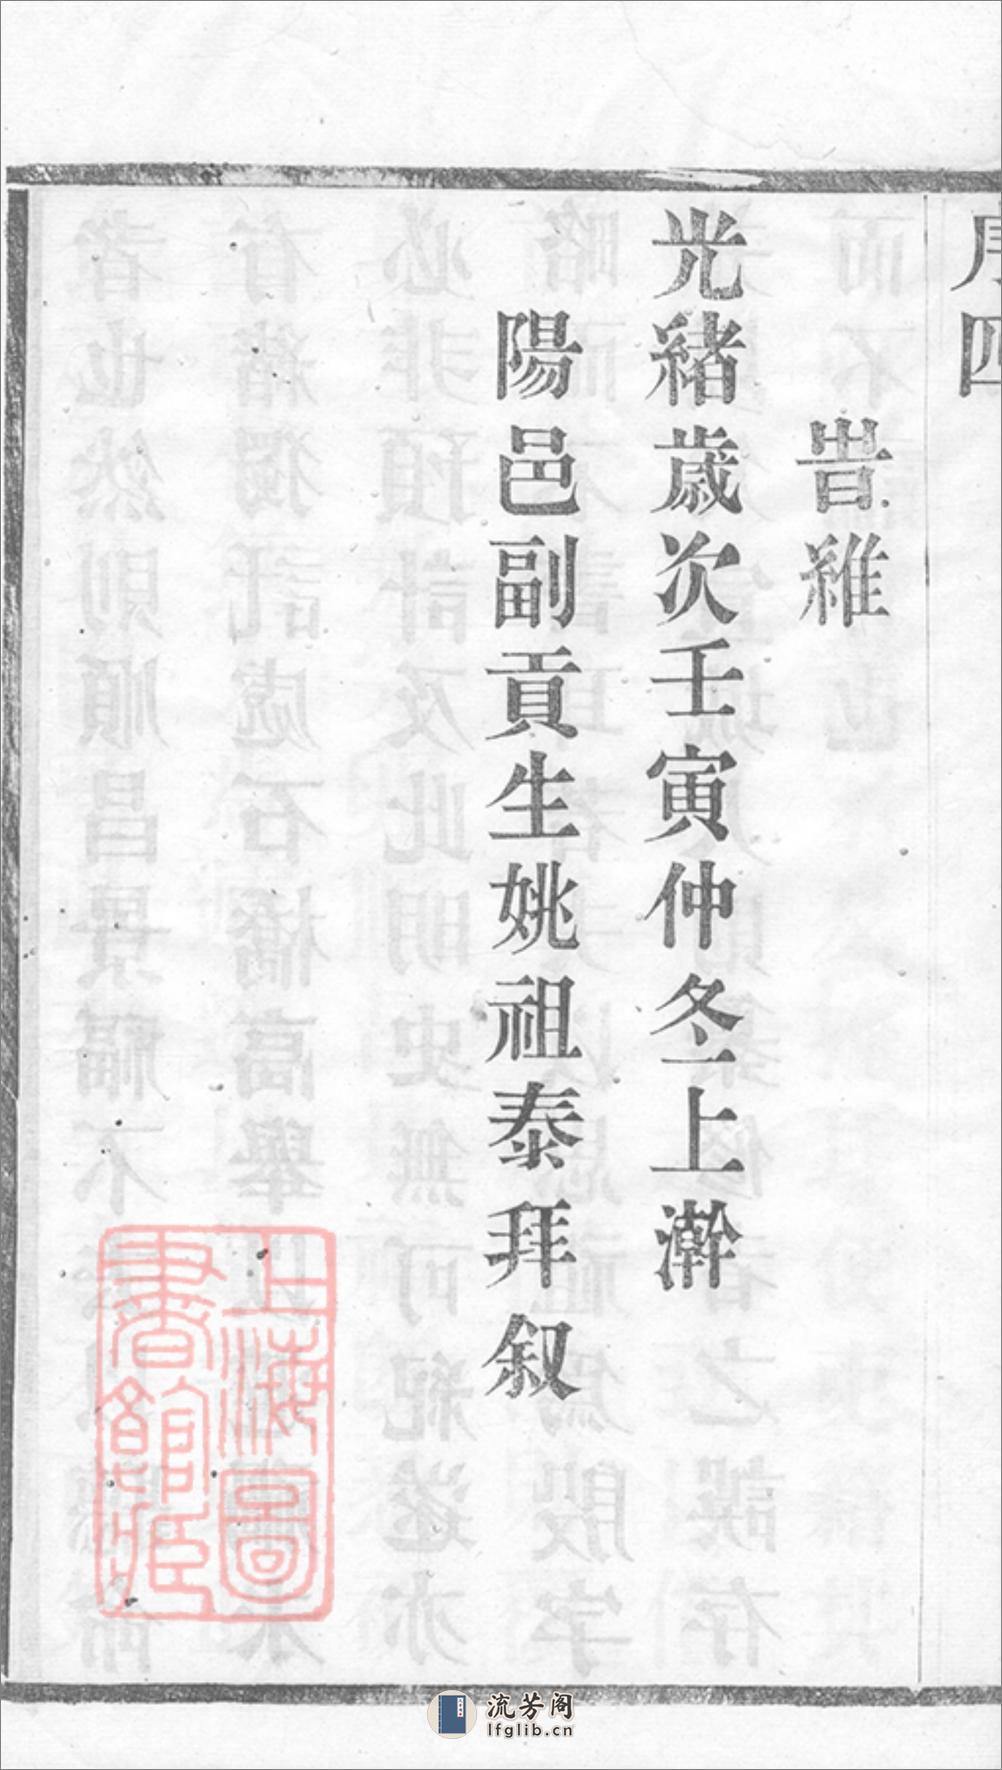 序四
旹維
光緒歲次壬寅仲冬上澣
陽邑副貢生姚祖泰拜叙
上海圖
書館藏
流芳阁
lfglib.cn